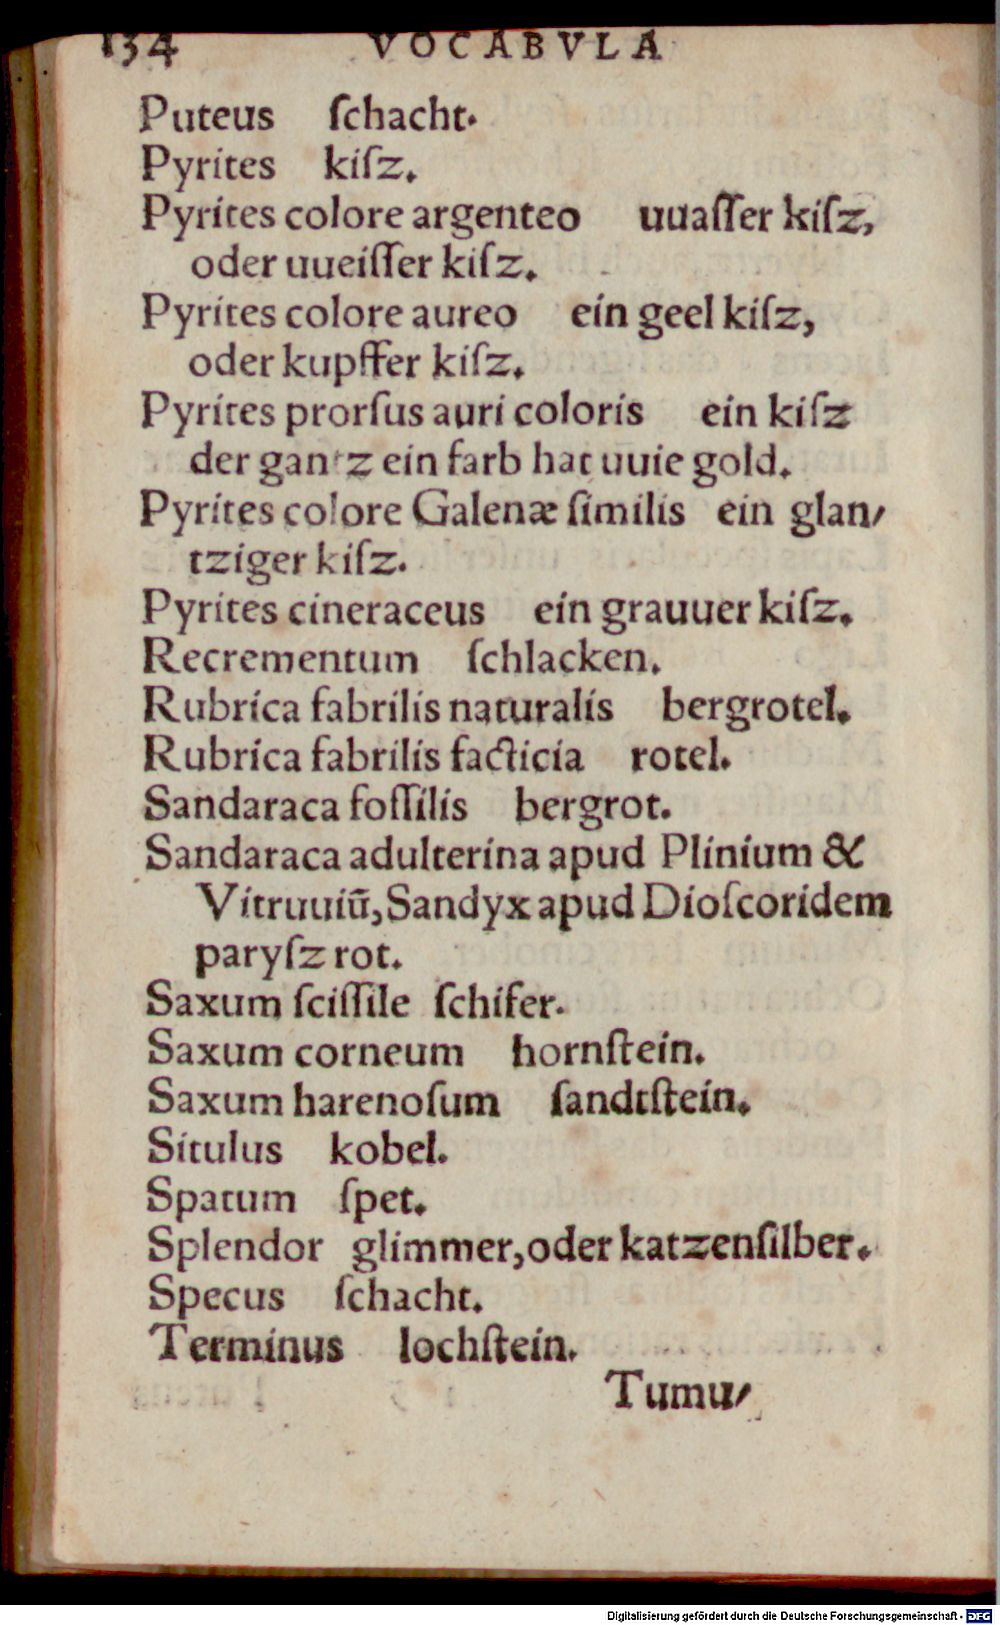 134 VOCABVLA
Puteus ſchacht.
Pyrites kiſz.
Pyrites colore argenteo uuaſſer kiſz,
oder uueiſſer kiſz.
Pyrites colore aureo ein geel kiſz,
oder kupffer kiſz.
Pyrites prorſus auri coloris ein kiſz
der gantz ein farb hat uuie gold.
Pyrites colore Galenæ ſimilis ein glan⸗
tziger kiſz.
Pyrites cineraceus ein grauuer kiſz.
Recrementum ſchlacken.
Rubrica fabrilis naturalis bergrotel.
Rubrica fabrilis facticia rotel.
Sandaraca foſſilis bergrot.
Sandaraca adulterina apud Plinium &
Vitruuiũ, Sandyx apud Dioſcoridem
paryſz rot.
Saxum ſciſſile ſchifer.
Saxum corneum hornſtein.
Saxum harenoſum ſandtſtein.
Situlus kobel.
Spatum ſpet.
Splendor glimmer, oder katzenſilber.
Specus ſchacht.
Terminus lochſtein.
Tumu⸗
Digitalisierung gefördert durch die Deutsche Forschungsgemeinschaft - DFG